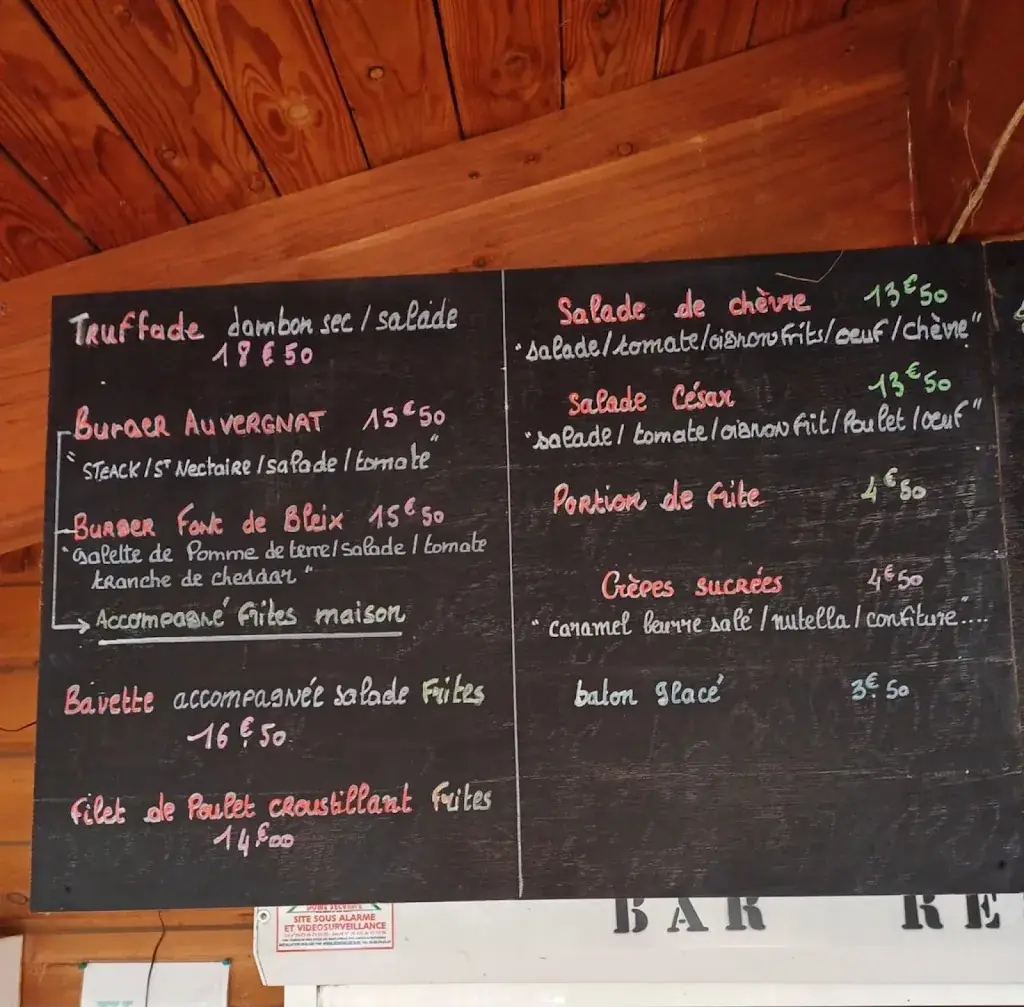 Truffade dambon sec / salade
18€50
Burger Auvergnat 15€50
"Steack / St Nectaire / salade / tomate"
Burger Font de Bleix 15€50
"galette de Pomme de terre / salade / tomate
tranche de cheddar"
Accompagné frites maison
Bavette accompagnée salade Frites
16€50
Filet de Poulet croustillant Frites
14€00
Salade de chèvre 13€50
"salade / tomate / oignon frits / oeuf / chèvre"
Salade César 13€50
"salade / tomate / oignon frit / Poulet / oeuf"
Portion de frite 4€50
Crèpes sucrées 4€50
"caramel beurre salé / nutella / confiture....
baton glacé 3€50
SITE SOUS ALARME
ET VIDEOSURVEILLANCE
BAR RE